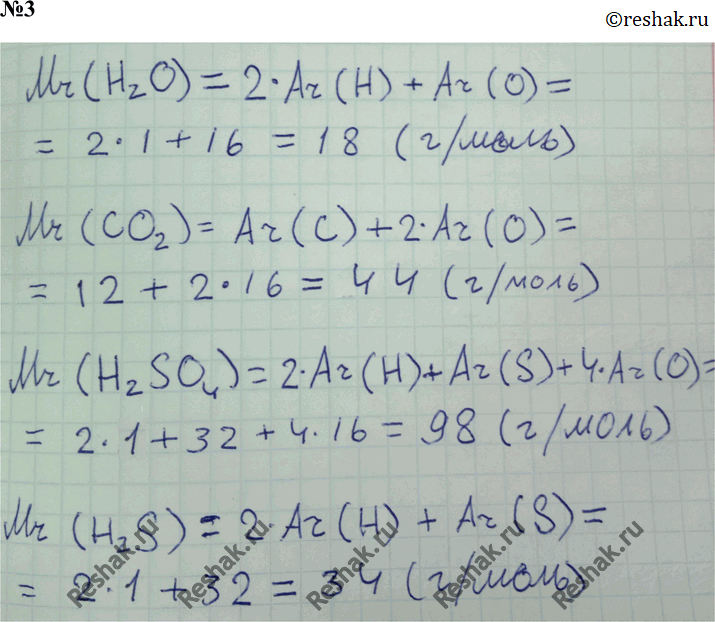 №3
©reshak.ru
Mr (H₂O) = 2·Ar (H) + Ar (O) =
= 2·1 + 16 = 18 (г/моль)
Mr (CO₂) = Ar (C) + 2·Ar (O) =
= 12 + 2·16 = 44 (г/моль)
Mr (H₂SO₄) = 2·Ar (H) + Ar (S) + 4·Ar (O) =
= 2·1 + 32 + 4·16 = 98 (г/моль)
Mr (H₂S) = 2·Ar (H) + Ar (S) =
= 2·1 + 32 = 34 (г/моль)
Reshak.ru Reshak.ru Reshak.ru Reshak.ru Reshak.ru